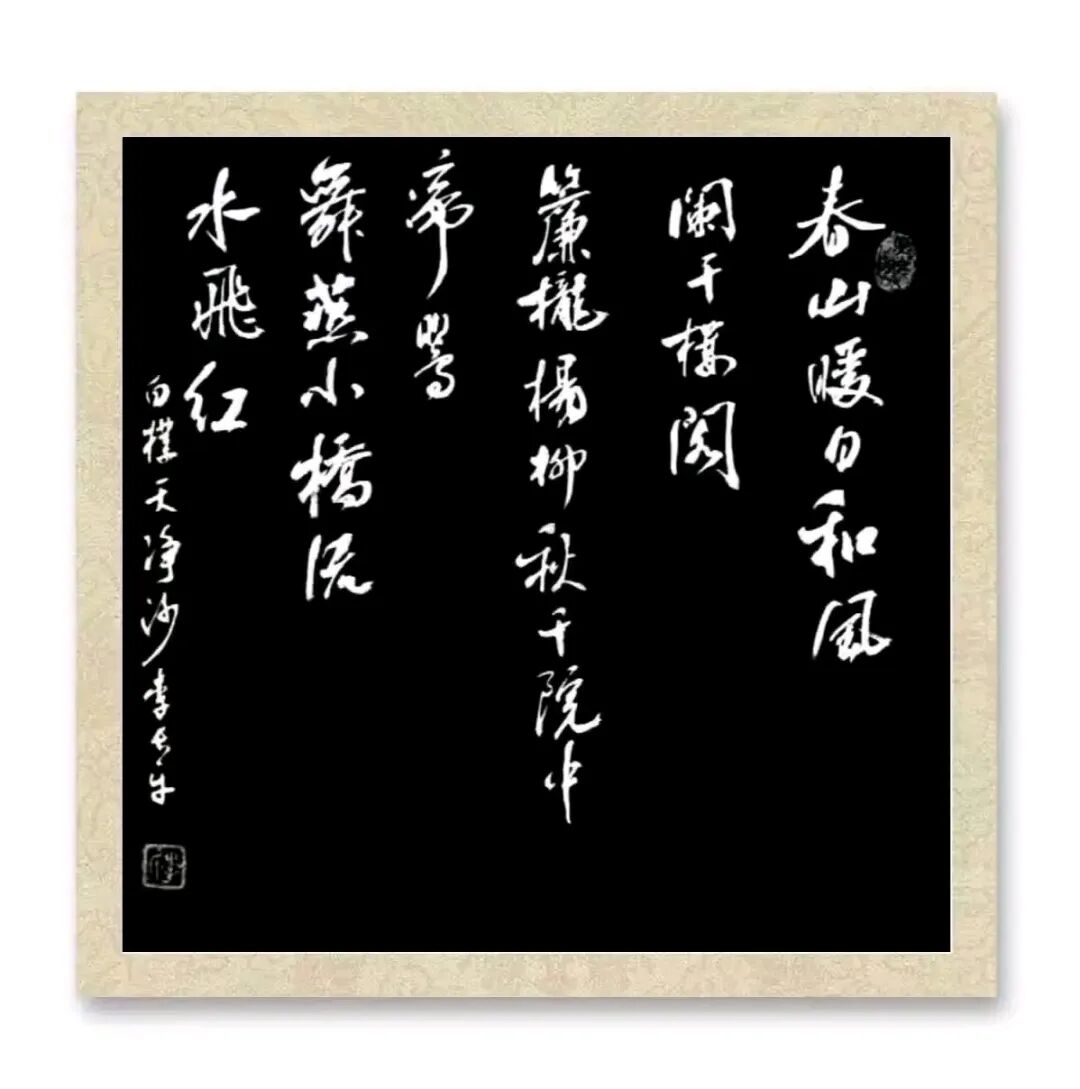 春山暖日和風
闌干樓閣
簾櫳楊柳秋千院中
啼鶯
舞燕小橋流
水飛红
白樸天净沙李